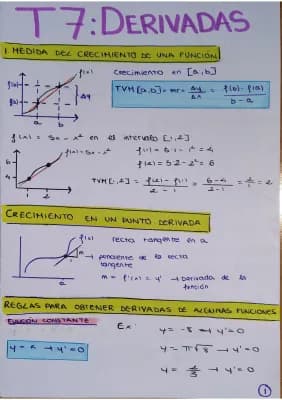 T7: DERIVADAS
1. MEDIDA DEL CRECIMIENTO DE UNA FUNCIÓN
f(x)
crecimiento en [a,b]
f(b)
f(a)
Δy
a b
TVM [a,b] = m = Δy/Δx = f(b) - f(a) / b - a
f(x) = 5x - x² en el intervalo [1,2]
f(x) = 5x - x²
f(1) = 5·1 - 1² = 4
f(2) = 5·2 - 2² = 6
6
4
1 2
TVM [1,2] = f(2) - f(1) / 2 - 1 = 6-4 / 2-1 = 2/1 = 2
CRECIMIENTO EN UN PUNTO. DERIVADA
f(x)
recta tangente en a
m
→ pendiente de la recta
tangente
m = f'(x) = y' → Derivada de la
función
a
REGLAS PARA OBTENER DERIVADAS DE ALGUNAS FUNCIONES
FUNCIÓN CONSTANTE
Ex:
y = -8 → y' = 0
y = k → y' = 0
y = π√8 → y' = 0
→ y' = 0
1